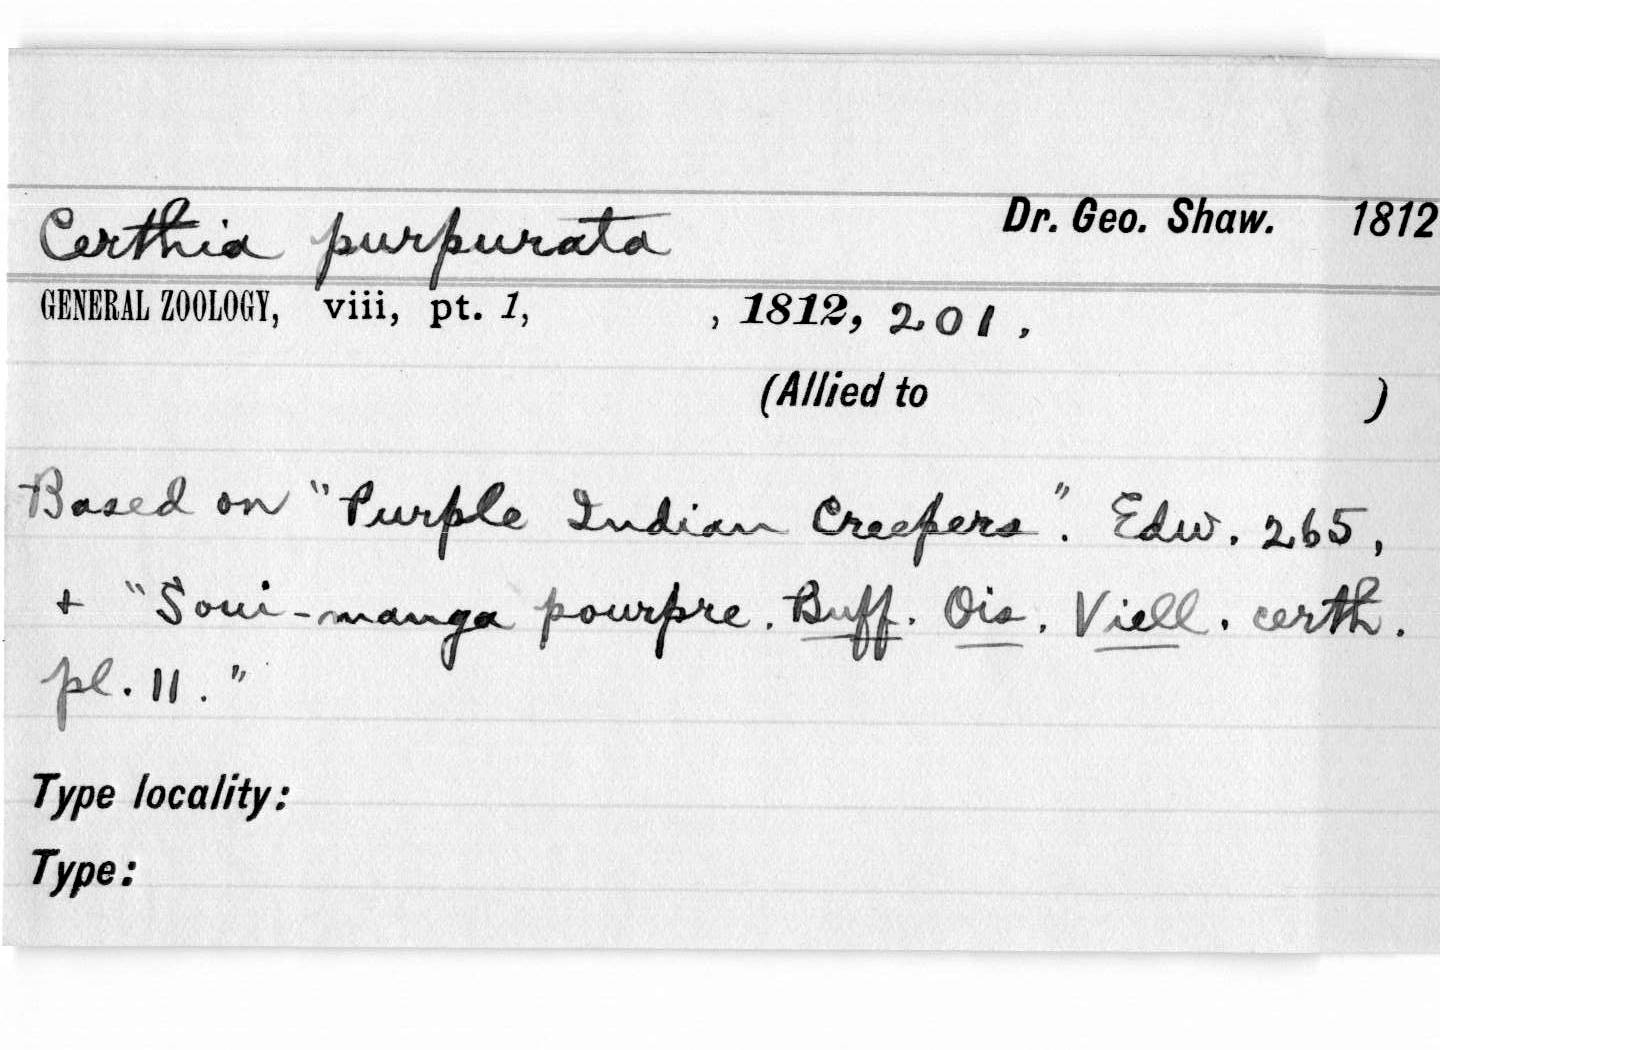 Certhia purpurata Dr. Geo. Shaw. 1812
GENERAL ZOOLOGY, viii, pt. 1, , 1812, 201,
(Allied to )
Based on "Purple Indian Creepers". Edw. 265,
+ "Soui-manga pourpre. Buff. Ois. Viell. certh.
pl. 11."
Type locality:
Type: